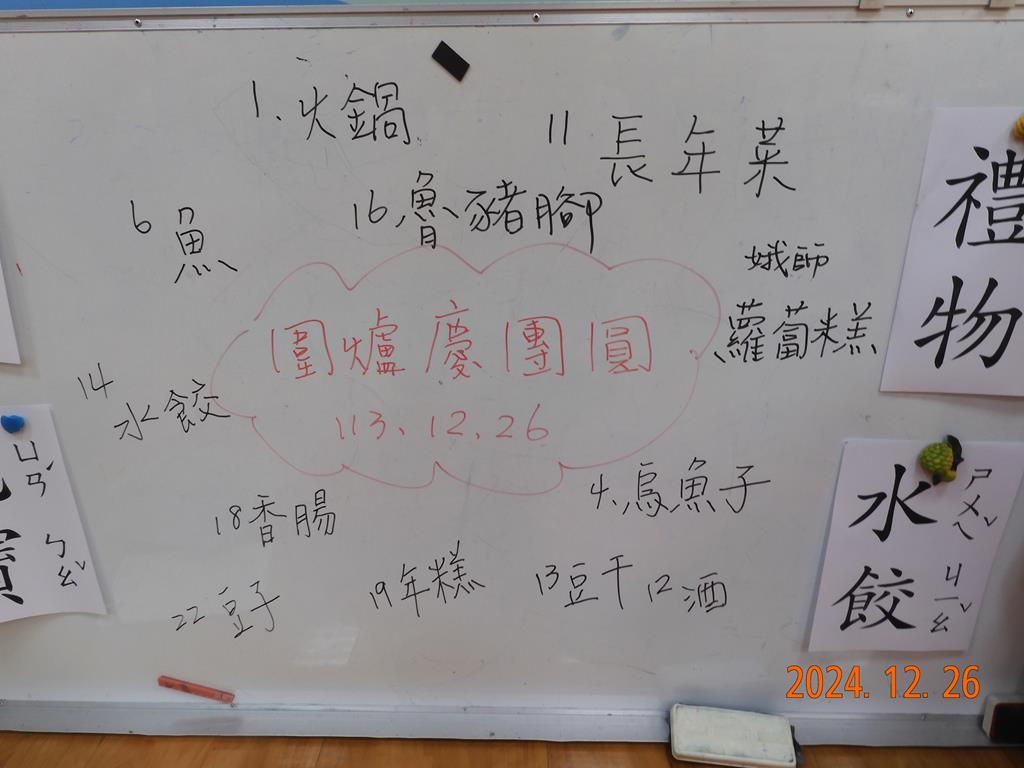 1.火鍋
11 長年菜
6 魚
16.魯豬腳
娥師
蘿蔔糕
圍爐慶團圓
113.12.26
14 水餃
18香腸
4.烏魚子
22 豆子
19年糕
13豆干
12酒
禮物
水餃
ㄕㄨㄟˇ
ㄐㄧㄠˇ
ㄩㄢˊ
ㄅㄠˇ
寶
2024. 12. 26